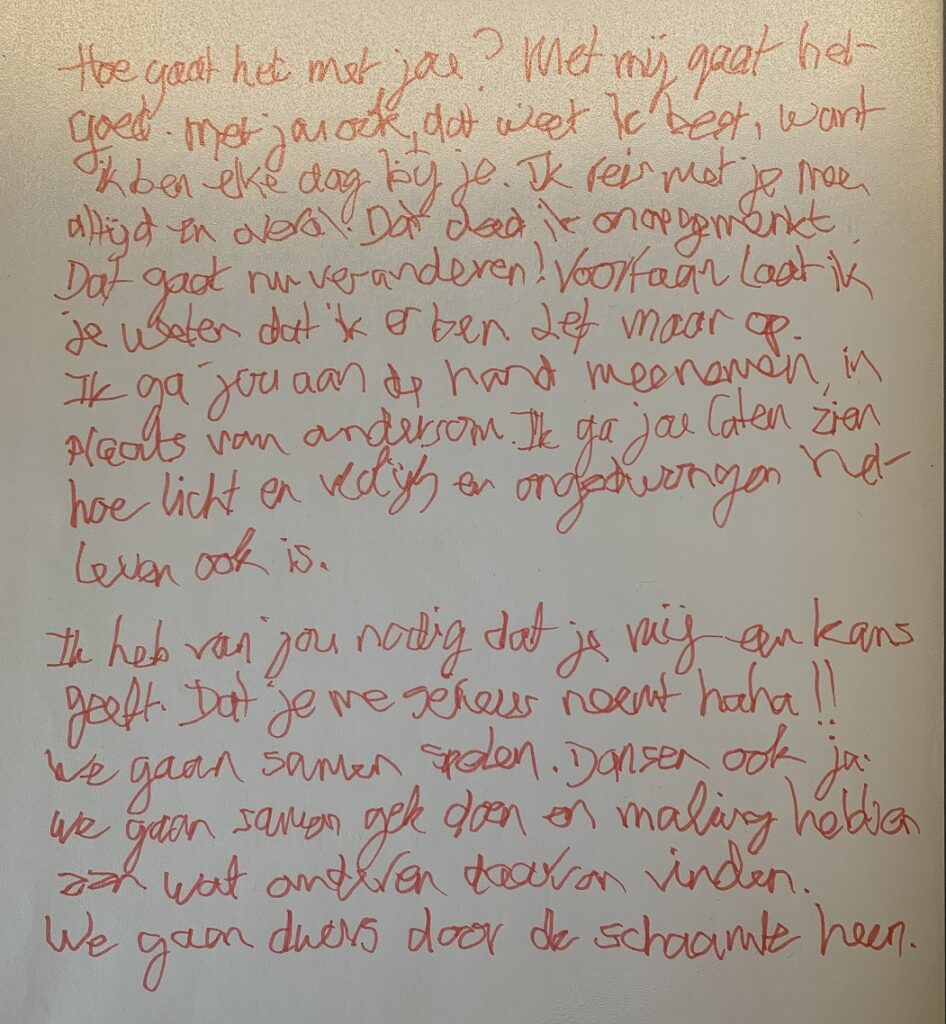 Hoe gaat het met jou? Met mij gaat het
goed. Met jou ook, dat weet ik best, want
ik ben elke dag bij je. Ik reis met je mee,
altijd en overal. Dat deed ik onopgemerkt.
Dat gaat nu veranderen! Voortaan laat ik
je weten dat ik er ben. Let maar op.
Ik ga jou aan de hand meenemen, in
plaats van andersom. Ik ga jou laten zien
hoe licht en vrolijk en ongedwongen het
leven ook is.
Ik heb van jou nodig dat je mij een kans
geeft. Dat je me serieus neemt haha!!
We gaan samen spelen. Dansen ook ja.
We gaan samen gek doen en maling hebben
aan wat anderen daarvan vinden.
We gaan dwars door de schaamte heen.